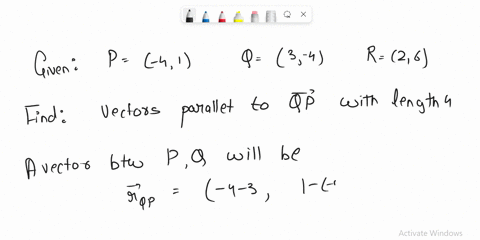 Given: P = (-4, 1) Q = (3, -4) R = (2, 6)
Find: Vectors parallel to QP with length 4
A vector btw P, Q will be
r QP = (-4-3, 1-(-
Activate Windows